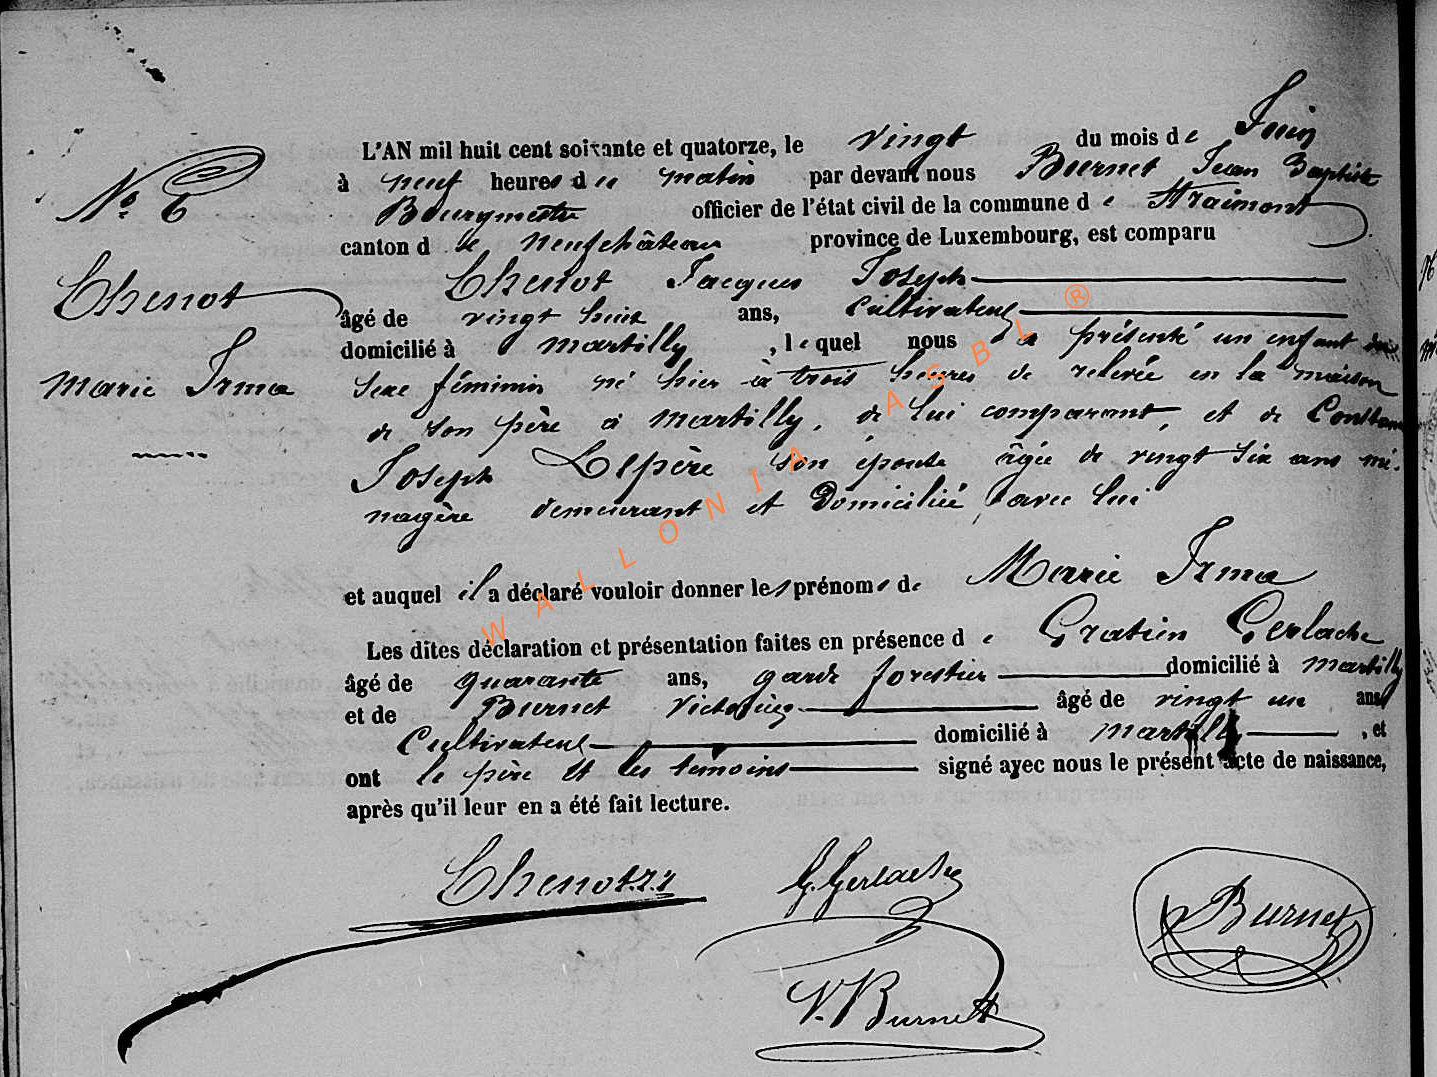 L'AN mil huit cent soixante et quatorze, le vingt du mois de Juin
à neuf heures du matin par devant nous Burnet Jean Baptiste
N° 6
Bourgmestre officier de l'état civil de la commune de Straimont
canton de neufchâteau province de Luxembourg, est comparu
Thenot Jacques Joseph
Thenot
âgé de vingt huit ans, cultivateur
domicilié à martilly, lequel nous a présenté un enfant du
Marie Irma
sexe féminin né hier à trois heures de relevée en la maison
de son père à martilly, de lui comparant, et de
Joseph Lepère son épouse âgée de vingt six ans mé-
nagère demeurant et domiciliée avec lui
et auquel il a déclaré vouloir donner les prénoms de Marie Irma
Les dites déclaration et présentation faites en présence de Gratien Gerlache
âgé de quarante ans, garde forestier domicilié à martilly
et de Burnet âgé de vingt un ans
Cultivateur domicilié à martilly, et
ont le père et les témoins signé avec nous le présent acte de naissance,
après qu'il leur en a été fait lecture.
Thenot J.J
G. Gerlache
Burnet
V. Burnet
WALLONIA ASBL ®